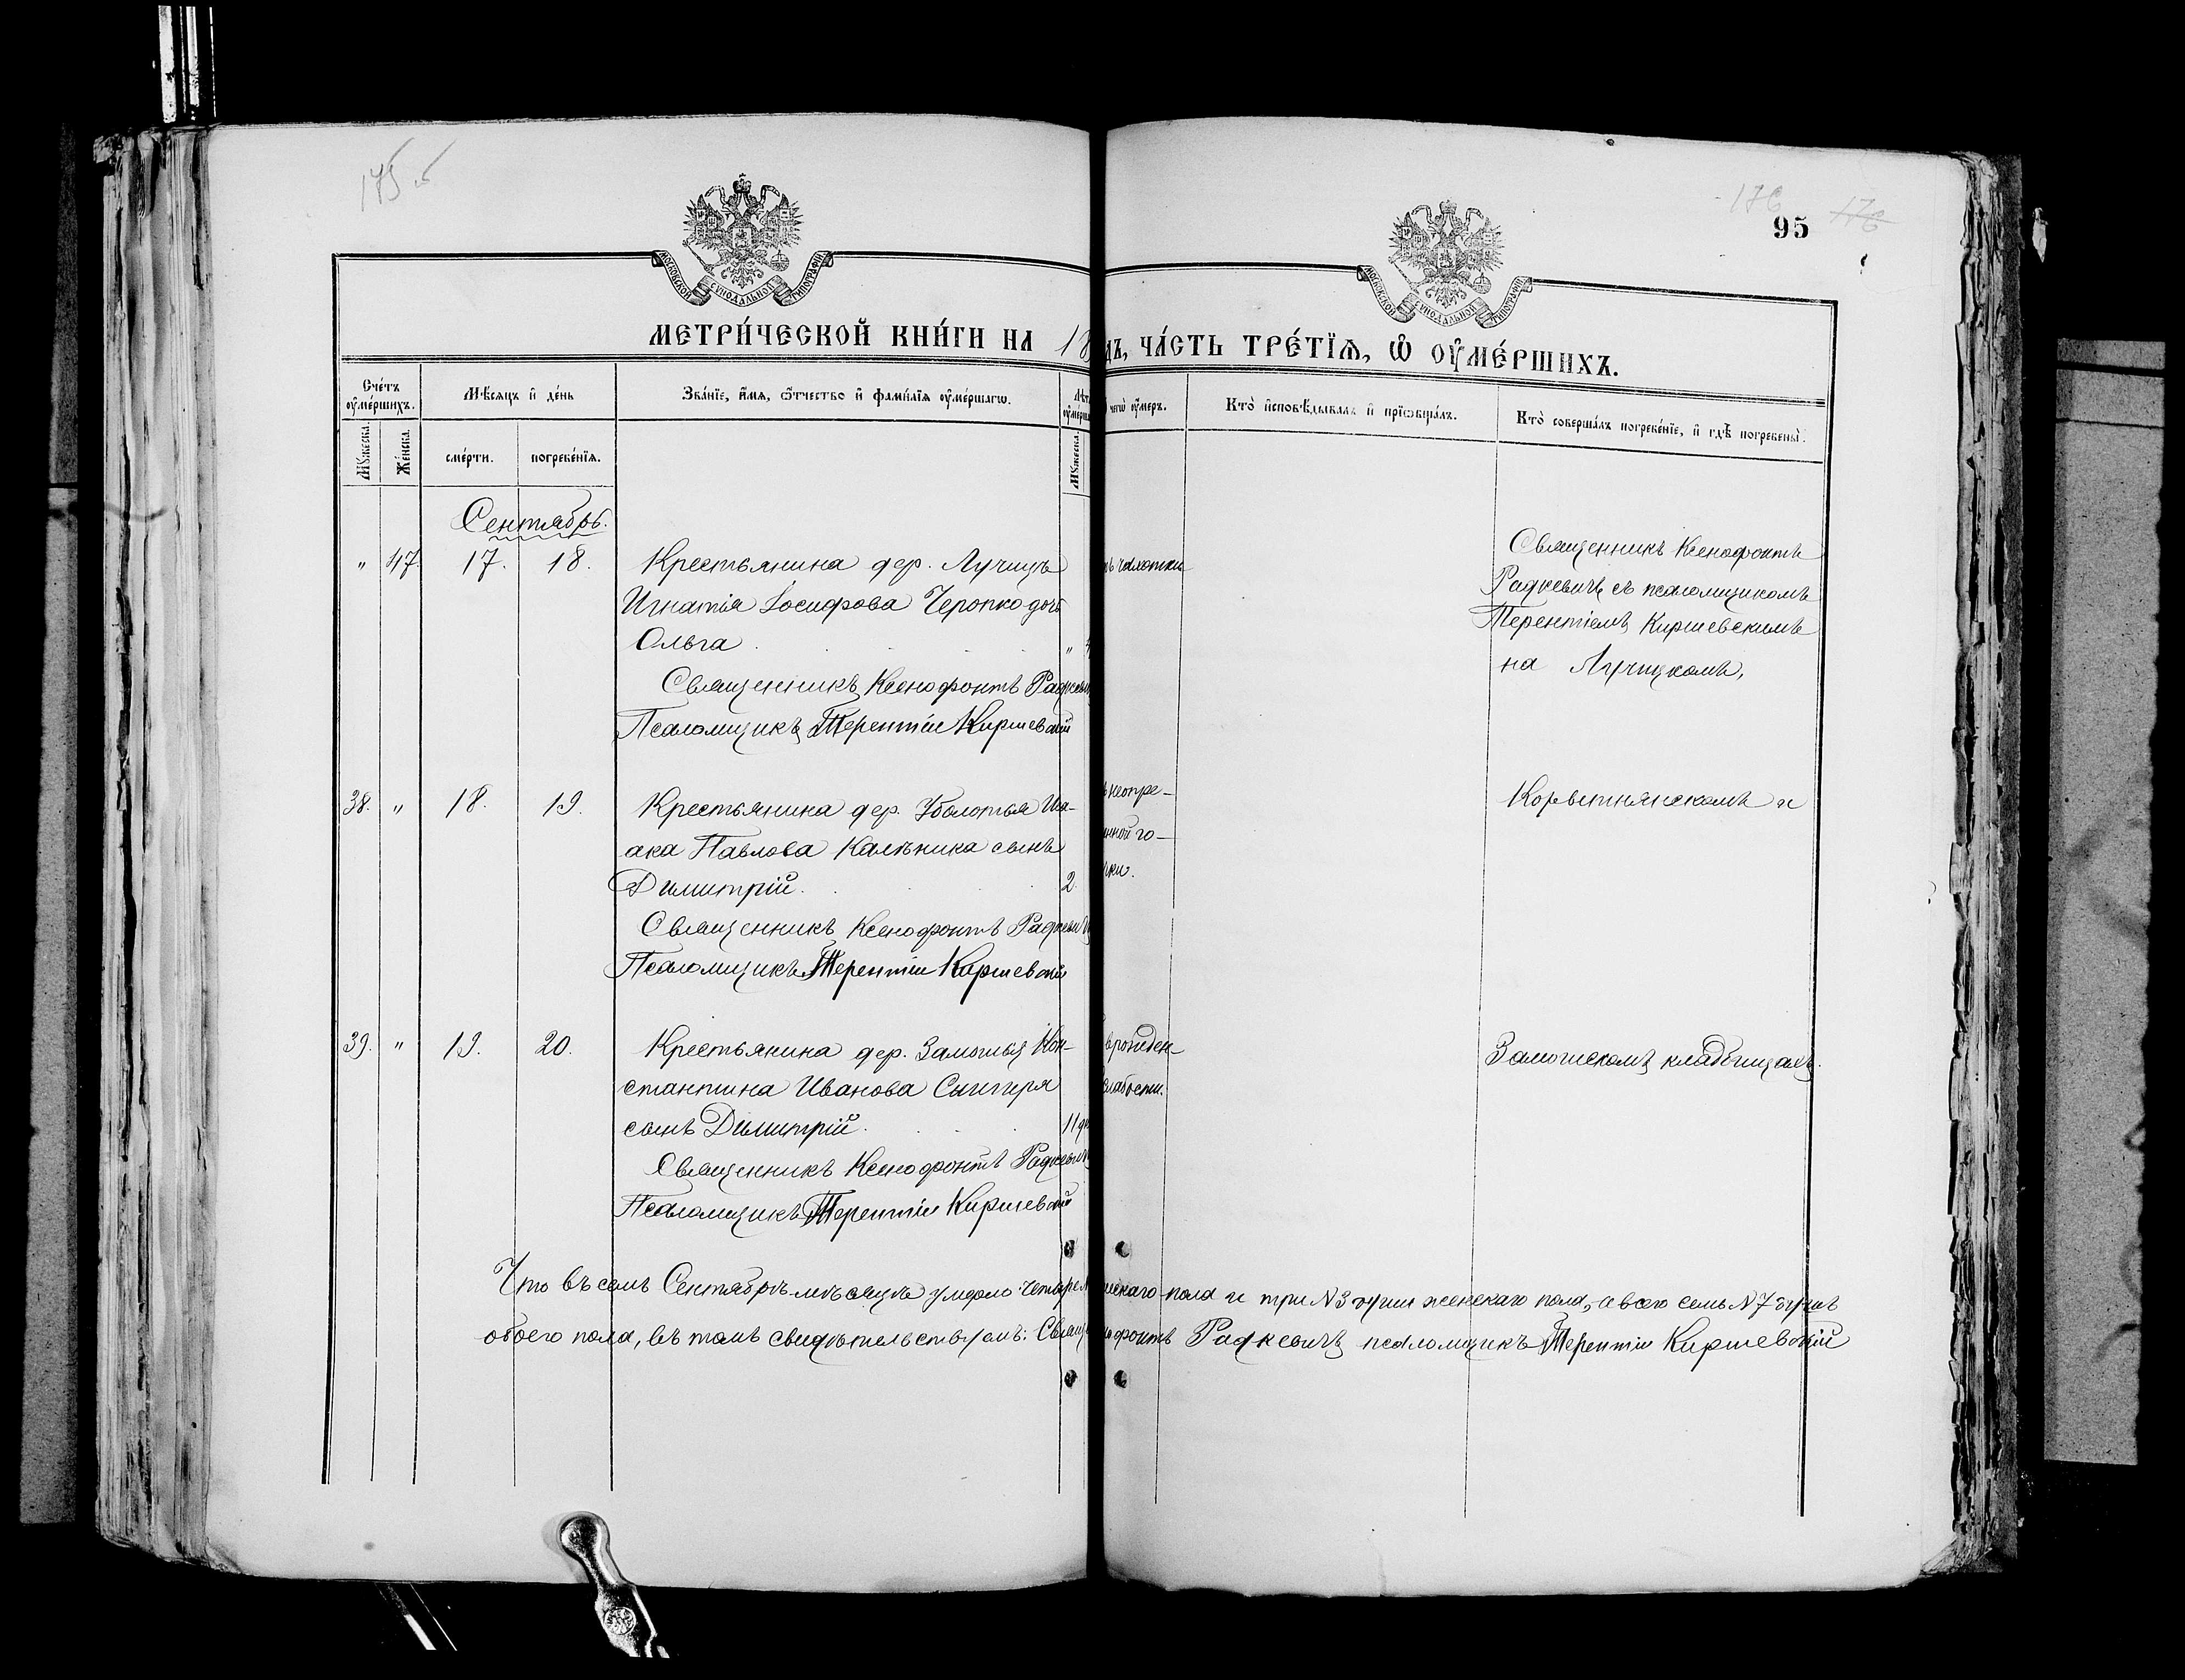 175 об
176
95
176
МОСКОВСКОЙ СѴНОДАЛЬНОЙ ТИПОГРАФІИ
МОСКОВСКОЙ СѴНОДАЛЬНОЙ ТИПОГРАФІИ
МЕТРИ́ЧЕСКОЙ КНИ́ГИ НА 18
ДЪ, ЧА́СТЬ ТРЕ́ТЇѦ, Ѡ҆ ОУ҆МЕ́РШИХЪ.
Сче́тъ оу҆ме́ршихъ.
Мѣ́сяцъ и҆ де́нь
Зва́нїе, и҆́мѧ, ѻ҆́тчество и҆ фами́лїѧ оу҆ме́ршагѡ.
Лѣт
оу҆ме́рша
чегѡ̀ оу҆́мер.
Кто̀ и҆сповѣ́дывалъ и҆ прїѡбща́лъ.
Кто̀ соверша́лъ погребе́нїе, и҆ гдѣ̀ погребены̀.
Мꙋ́жеска.
Же́нска.
сме́рти.
погребе́нїѧ.
Мꙋ́жеска.
Сентябрь.
" 47. 17. 18. Крестьянина дер. Лучицъ
Игнатія Іосифова Черопко дочь
Ольга "
Священникъ Ксенофонтъ Радкевич
Псаломщикъ Терентій Киршевскій
чахотки
Священникъ Ксенофонтъ
Радкевичъ съ псаломщикомъ
Терентіемъ Киршевскимъ
на Лучицкомъ,
38. " 18. 19. Крестьянина дер. Уболотья Иса-
ака Павлова Калѣника сынъ
Димитрій. 2.
Священникъ Ксенофонтъ Радкевич
Псаломщикъ Терентій Киршевскій
ъ неопре-
нной го-
чки.
Корветнянскомъ и
39. " 19. 20. Крестьянина дер. Замошья Кон-
стантина Иванова Снигиря
сынъ Димитрій. 11 дн
Священникъ Ксенофонтъ Радкевич
Псаломщикъ Терентій Киршевскій
врожден-
слабости.
Замошскомъ кладбищахъ.
Что въ семъ Сентябрѣ мѣсяцѣ умерло четыре м жскаго пола и три N 3 души женскаго пола, а всего семь N 7 душъ
обоего пола, въ томъ свидѣтельствуемъ: Свящ нофонтъ Радкевичъ псаломщикъ Терентій Киршевскій